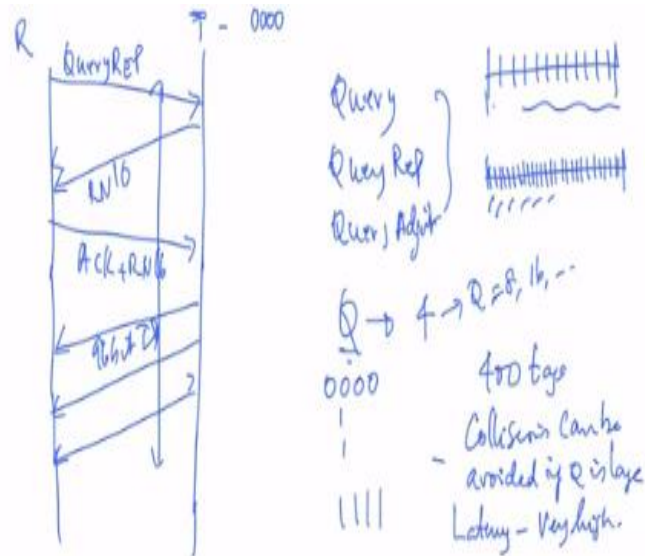 R
T - 0000
QueryREP
RN16
ACK+RN16
96 bit ID
Query
Query Rep
Query Adjust
Q → 4 → Q=8, 16, ...
0000
1111
400 tags
- Collisions can be
avoided if Q is large
Latency - Very high.